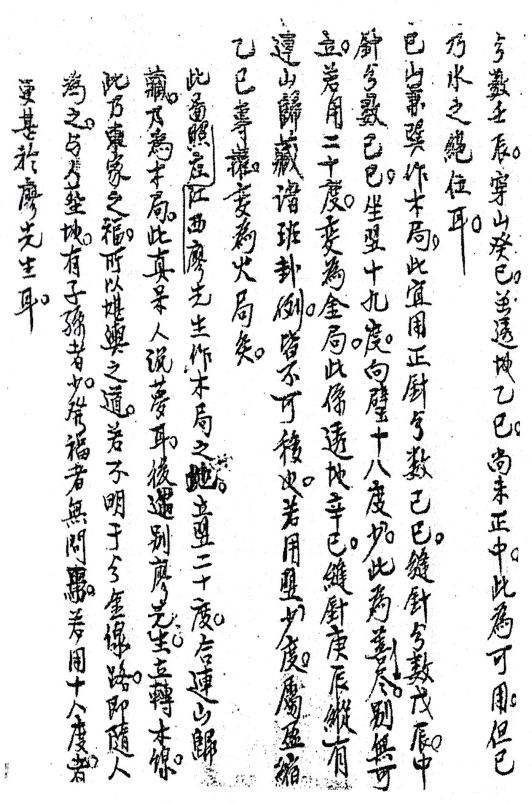 分数壬辰。穿山癸巳。並透地乙巳。尚未正中。此為可用。但巳
乃水之絕位耳。
巳山兼巽作木局。此宜用正針分数己巳。縫針分数戊辰。中
針分数己巳。坐翌十九度。向壁十八度少。此為盡。別無可
立。若用二十度。変為金局。此係透地辛巳。縫針庚辰。縱有
連山歸藏諸班卦例。皆不可移也。若用翌少度。屬盈縮
乙巳。変為火局矣。
此圖照庄江西廖先生作木局之地。立翌二十度。合連山歸
藏。乃為木局。此真呆人説夢耳。後遇別廖先生。立轉木線。
此乃東家之福。所以堪輿之道。若不明于分金線路。即隨人
為之。坐地。有子孫者少。発福者無問。若用十八度者
更甚於廖先生耳。